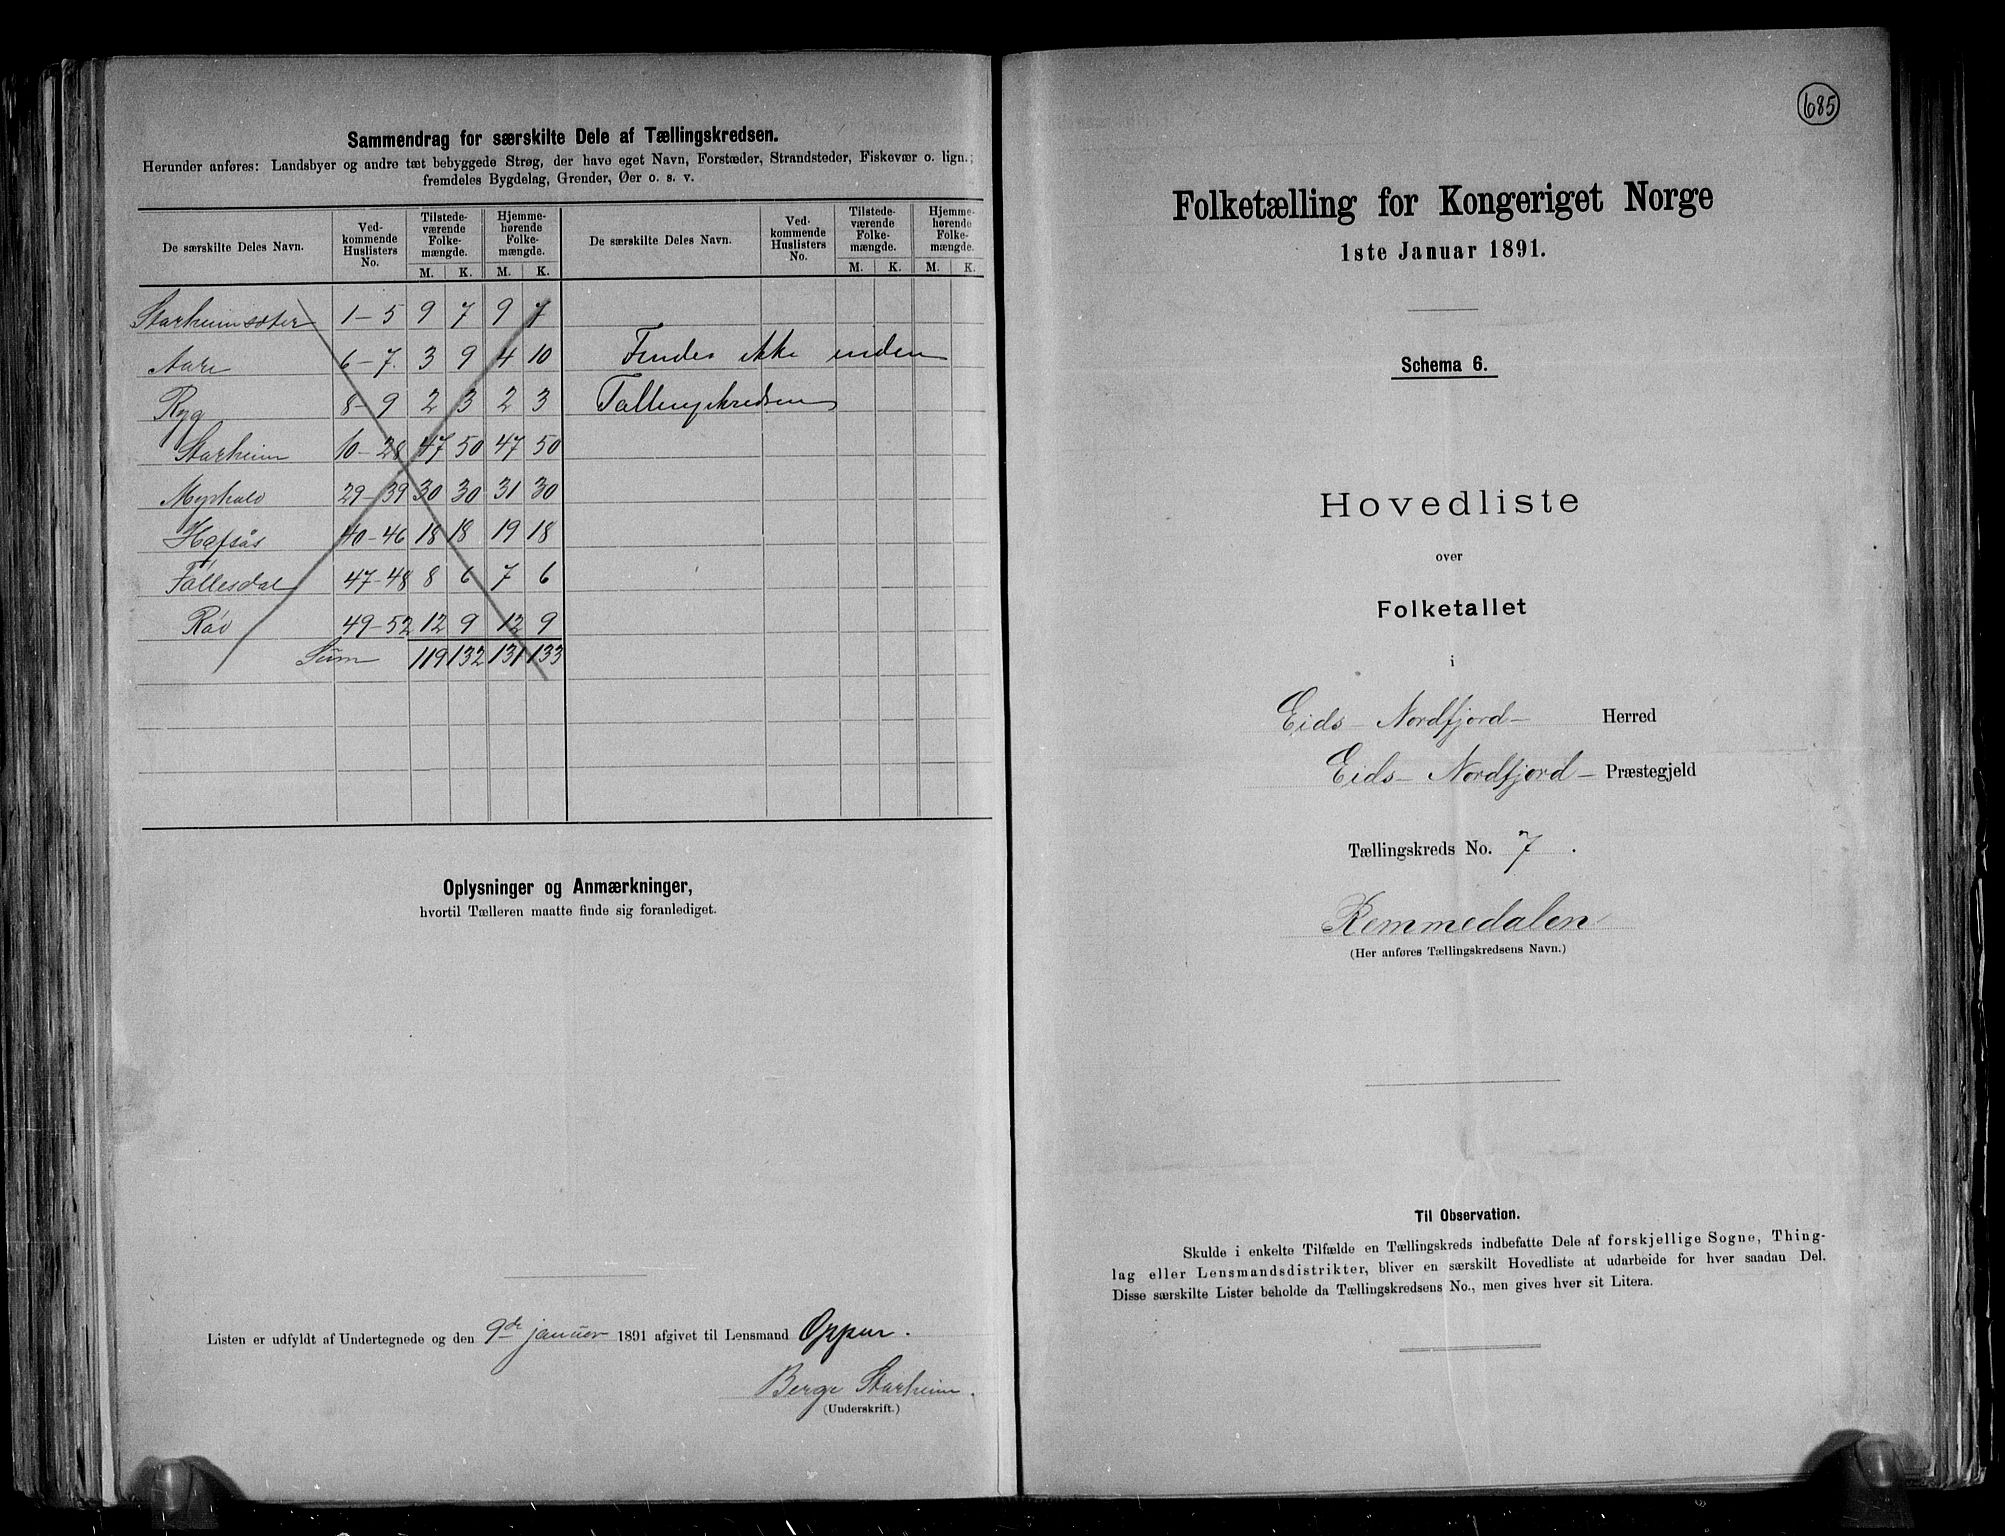 Sammendrag for særskilte Dele af Tællingskredsen.
Herunder anføres: Landsbyer og andre tæt bebyggede Strøg, der have eget Navn, Forstæder, Strandsteder, Fiskevær o. lign.;
fremdeles Bygdelag, Grender, Øer o. s. v.
De særskilte Deles Navn. Vedkommende Huslisters No. Tilstedeværende Folkemængde. M. K. Hjemmehørende Folkemængde. M. K. De særskilte Deles Navn. Vedkommende Huslisters No. Tilstedeværende Folkemængde. M. K. Hjemmehørende Folkemængde. M. K.
Starheimsæter 1-5 9 7 9 7
Aare 6-7. 3 9 4 10 Findes ikke inden
Ryg 8-9 2 3 2 3 Tællingskredsen
Starheim 10-28 47 50 47 50
Myrhold 29-39 30 30 31 30
Hafsås 40-46 18 18 19 18
Fållesdal 47-48 8 6 7 6
Råd 49-52 12 9 12 9
Sum 119 132 131 133
Oplysninger og Anmærkninger,
hvortil Tælleren maatte finde sig foranlediget.
Listen er udfyldt af Undertegnede og den 9de januar 1891 afgivet til Lensmand Oppen.
Berge Starheim.
(Underskrift.)
685
Folketælling for Kongeriget Norge
1ste Januar 1891.
Schema 6.
Hovedliste
over
Folketallet
i
Eids- Nordfjord- Herred
Eids- Nordfjord- Præstegjeld
Tællingskreds No. 7.
Remmedalen
(Her anføres Tællingskredsens Navn.)
Til Observation.
Skulde i enkelte Tilfælde en Tællingskreds indbefatte Dele af forskjellige Sogne, Thing-
lag eller Lensmandsdistrikter, bliver en særskilt Hovedliste at udarbeide for hver saadan Del.
Disse særskilte Lister beholde da Tællingskredsens No., men gives hver sit Litera.